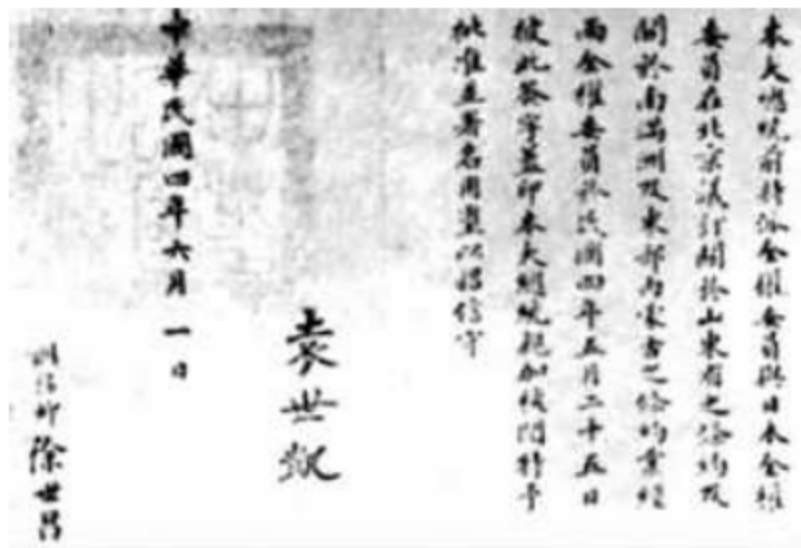 本大總統前特派全權委員與日本全權
委員在北京議訂關於山東省之條約及
關於南滿洲及東部內蒙古之條約業經
兩全權委員於民國四年五月二十五日
彼此簽字蓋印本大總統親加核閱特予
批准並署名用璽以昭信守
袁世凱
中華民國四年六月一日
卿徐世昌